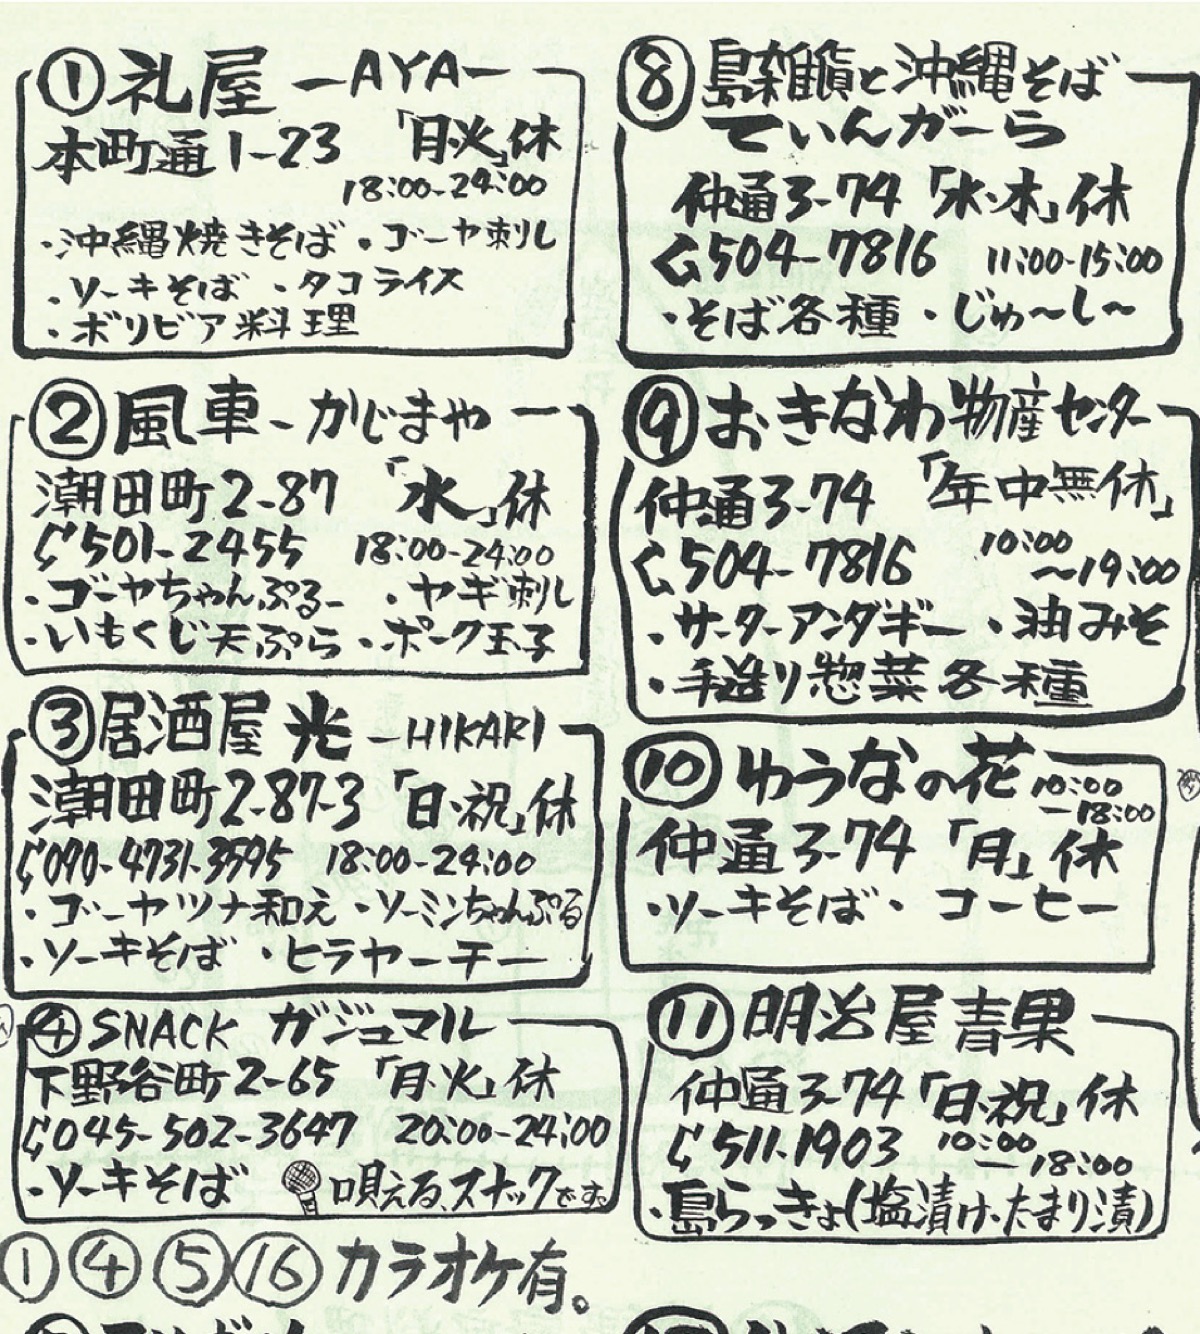 ① 礼屋 -AYA-
本町通1-23 「月・火」休
18:00-24:00
・沖縄焼きそば ・ゴーヤ刺し
・ソーキそば ・タコライス
・ボリビア料理
② 風車-かじまや-
潮田町2-87 「水」休
501-2455 18:00-24:00
・ゴーヤちゃんぷるー ・ヤギ刺し
・いもくじ天ぷら ・ポーク玉子
③ 居酒屋 光 -HIKARI-
潮田町2-87-3 「日・祝」休
090-4731-3595 18:00-24:00
・ゴーヤツナ和え ・ソーミンちゃんぷる
・ソーキそば ・ヒラヤーチー
④ SNACK ガジュマル
下野谷町2-65 「月・火」休
045-502-3647 20:00-24:00
・ソーキそば 唄える、スナックです。
① ④ ⑤ ⑯ カラオケ有。
⑧ 島雑貨と沖縄そば
てぃんがーら
仲通3-74 「水・木」休
504-7816 11:00-15:00
・そば各種 ・じゅ〜し〜
⑨ おきなわ物産センター
仲通3-74 「年中無休」
504-7816 10:00〜19:00
・サーターアンダギー ・油みそ
・手造り惣菜各種
⑩ ゆうなの花 10:00-18:00
仲通3-74 「月」休
・ソーキそば ・コーヒー
⑪ 明治屋青果
仲通3-74 「日・祝」休
511-1903 10:00-18:00
・島らっきょ(塩漬け・たまり漬)